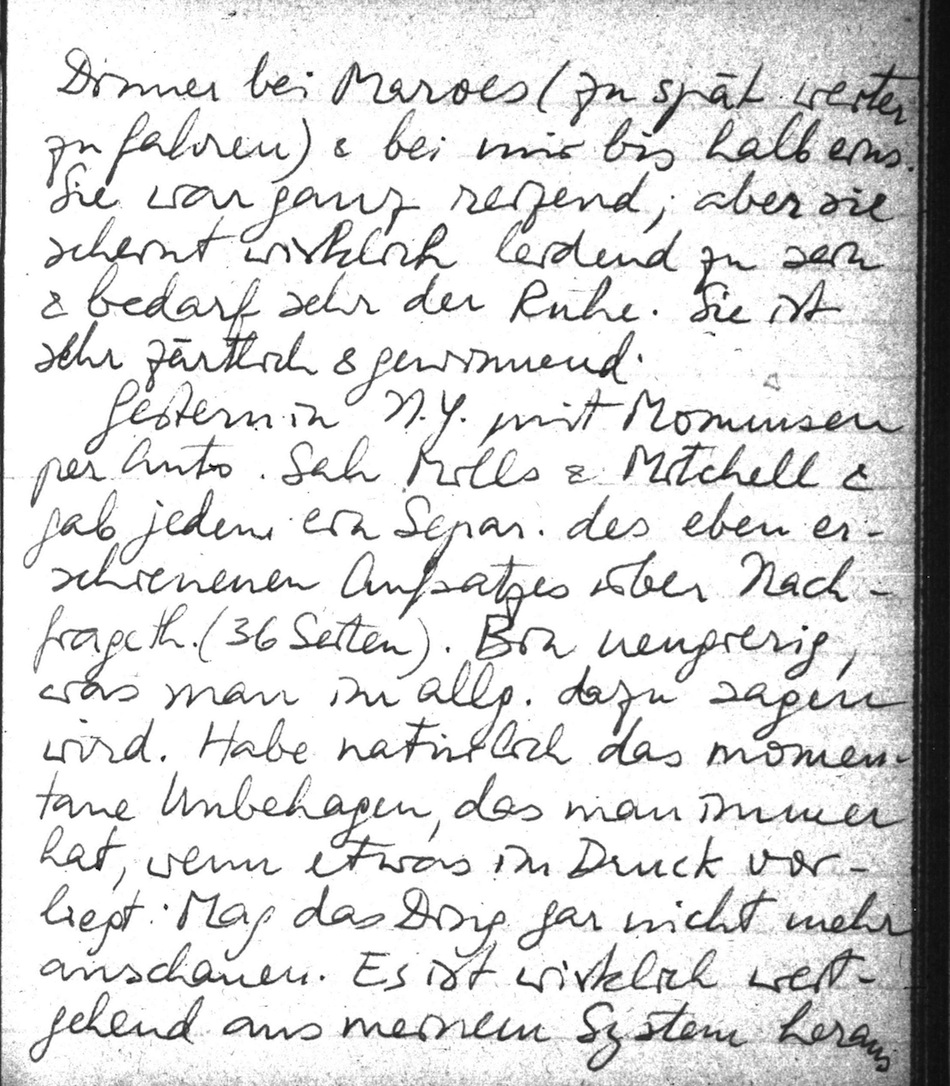 Dinner bei Maroes (zu spät weiter
zu fahren) & bei mir bis halb eins.
Sie war ganz reizend; aber sie
scheint wirklich leidend zu sein
& bedarf sehr der Ruhe. Sie ist
sehr zärtlich & gewinnend.
Gestern in N.Y. mit Mommsen
per Auto. Sah Mills & Mitchell &
gab jedem ein Separ. des eben er-
schienenen Aufsatzes über Nach-
frageth. (36 Seiten). Bin neugierig,
was man im allg. dazu sagen
wird. Habe natürlich das momen-
tane Unbehagen, das man immer
hat, wenn etwas im Druck vor-
liegt. Mag das Ding gar nicht mehr
anschauen. Es ist wirklich weit-
gehend aus meinem System heraus